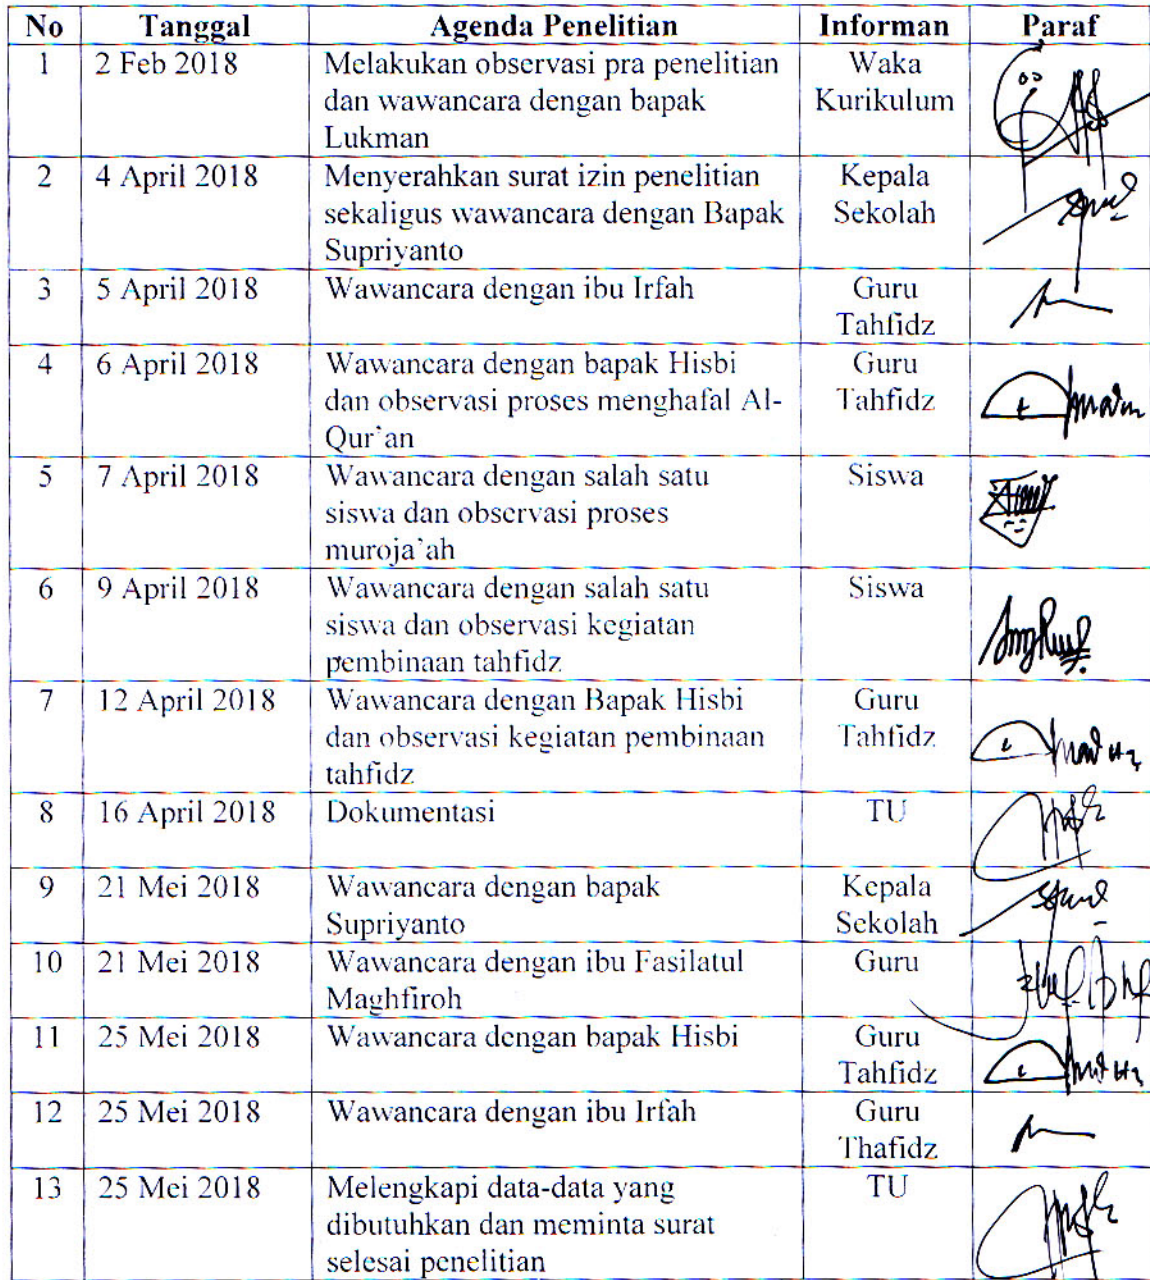 No Tanggal Agenda Penelitian Informan Paraf
1 2 Feb 2018 Melakukan observasi pra penelitian Waka
dan wawancara dengan bapak Kurikulum
Lukman
2 4 April 2018 Menyerahkan surat izin penelitian Kepala
sekaligus wawancara dengan Bapak Sekolah
Supriyanto
3 5 April 2018 Wawancara dengan ibu Irfah Guru
Tahfidz
4 6 April 2018 Wawancara dengan bapak Hisbi Guru
dan observasi proses menghafal Al- Tahfidz
Qur'an
5 7 April 2018 Wawancara dengan salah satu Siswa
siswa dan observasi proses
muroja'ah
6 9 April 2018 Wawancara dengan salah satu Siswa
siswa dan observasi kegiatan
pembinaan tahfidz
7 12 April 2018 Wawancara dengan Bapak Hisbi Guru
dan observasi kegiatan pembinaan Tahfidz
tahfidz
8 16 April 2018 Dokumentasi TU
9 21 Mei 2018 Wawancara dengan bapak Kepala
Supriyanto Sekolah
10 21 Mei 2018 Wawancara dengan ibu Fasilatul Guru
Maghfiroh
11 25 Mei 2018 Wawancara dengan bapak Hisbi Guru
Tahfidz
12 25 Mei 2018 Wawancara dengan ibu Irfah Guru
Thafidz
13 25 Mei 2018 Melengkapi data-data yang TU
dibutuhkan dan meminta surat
selesai penelitian